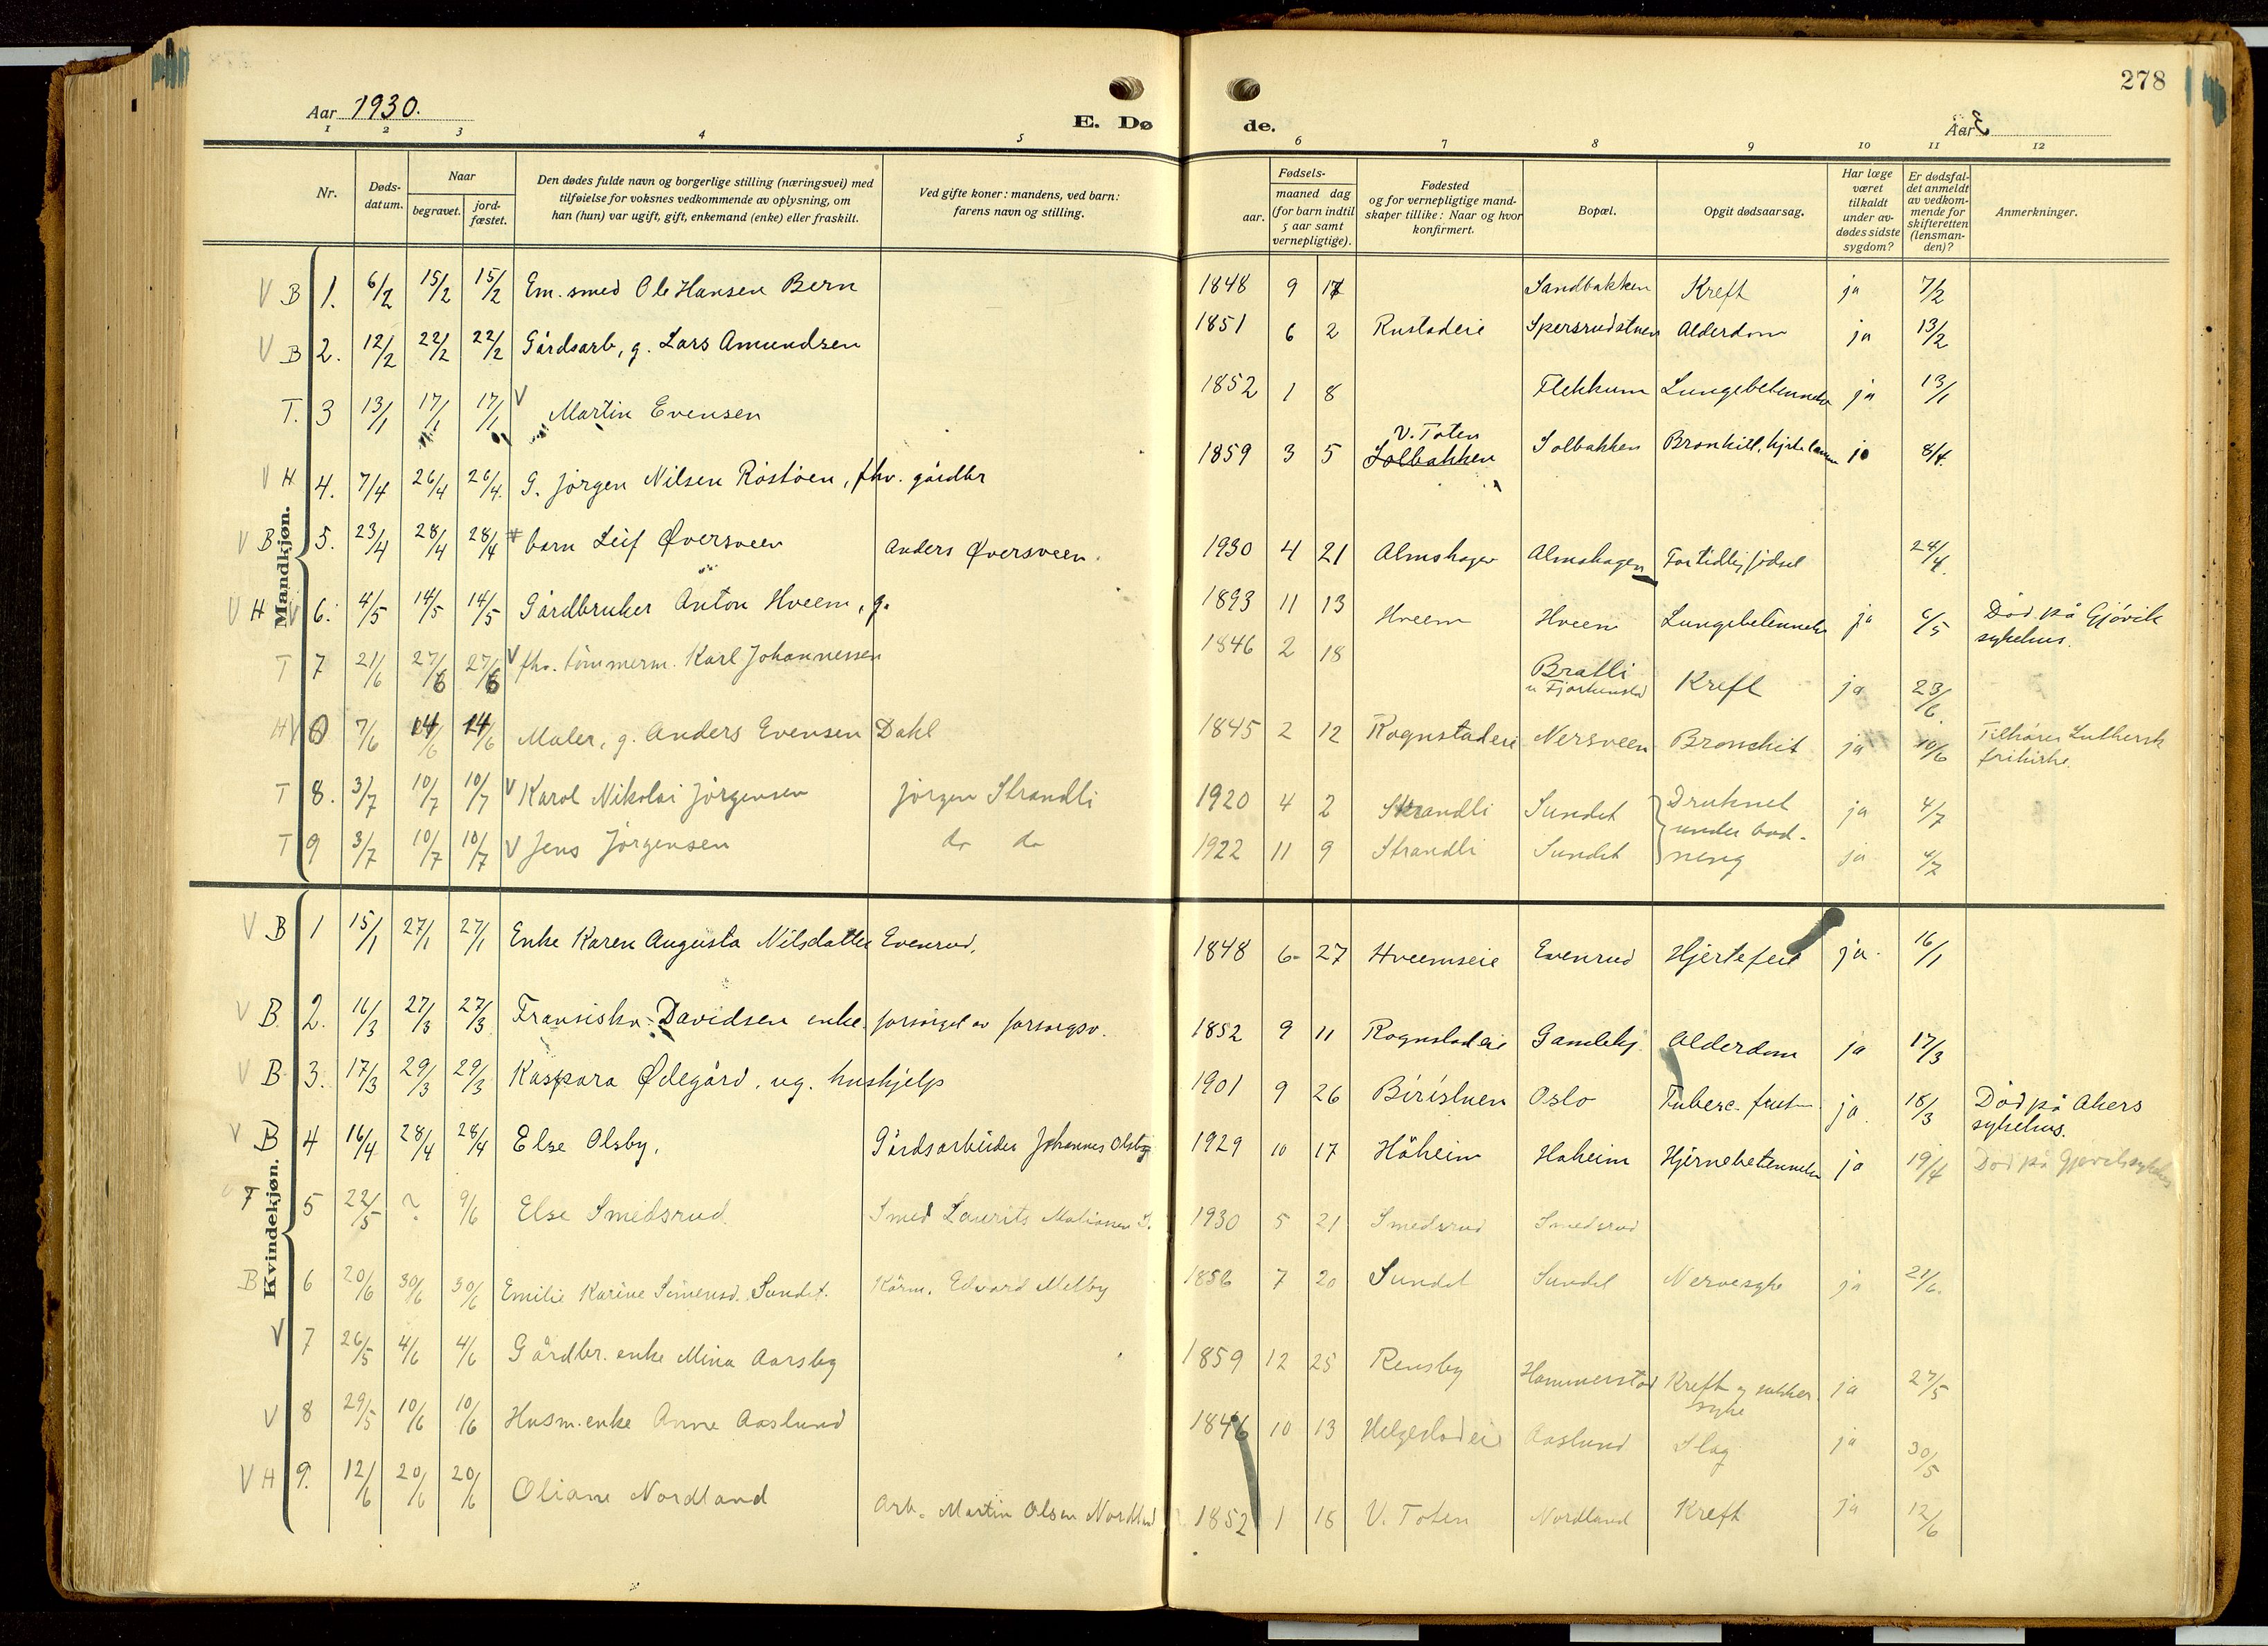 278
Aar 1930.
E. Døde.
Aar 3
1 2 3 4 5 6 7 8 9 10 11 12
Nr.
Døds-datum.
Naar
begravet.
jord-fæstet.
Den dødes fulde navn og borgerlige stilling (næringsvei) med
tilføielse for voksnes vedkommende av oplysning, om
han (hun) var ugift, gift, enkemand (enke) eller fraskilt.
Ved gifte koner: mandens, ved barn:
farens navn og stilling.
Fødsels-
aar.
maaned dag
(for barn indtil
5 aar samt
vernepligtige).
Fødested
og for vernepligtige mand-
skaper tillike: Naar og hvor
konfirmert.
Bopæl.
Opgit dødsaarsag.
Har læge
været
tilkaldt
under av-
dødes sidste
sygdom?
Er dødsfal-
det anmeldt
av vedkom-
mende for
skifteretten
(lensman-
den)?
Anmerkninger.
Mandkjøn.
V B 1. 6/2 15/2 15/2 Em. smed Ole Hansen Bern 1848 9 17 Sandbakken Kreft ja 7/2
V B 2. 12/2 22/2 22/2 Gårdsarb, g. Lars Amundsen 1851 6 2 Rustadeie Spersrudstuen Alderdom ja 13/2
T. 3 13/1 17/1 17/1 V Martin Evensen 1852 1 8 Flekkum Lungebetennelse ja 13/1
V H 4. 7/4 26/4 26/4. G. Jörgen Nilsen Röstöen, fhv. gårdbr 1859 3 5 V. Toten Solbakken Solbakken Bronkitt, ja 8/4.
V B 5. 23/4 28/4 28/4 # barn Leif Øversveen Anders Øversveen. 1930 4 21 Almshagen Almshagen For tidlig födsel 24/4.
V H V 6. 4/5 14/5 14/5 Gårdbruker Anton Hveem, g. 1893 11 13 Hveem Hveem Lungebetennelse ja 6/5 Död på Gjövik
sykehus.
T 7 21/6 27/6 27/6 V fhv. tömmerm. Karl Johannessen 1846 2 18 Bratli Kreft ja 23/6.
H V 7/6 14/6 14/6 Maler, g. Anders Evensen Dahl 1845 2 12 Rognstadeie Nersveen Bronchit ja 10/6 Tilhörer Luthersk
frikirke.
T 8. 3/7 10/7 10/7 V Karol Nikolai Jörgensen Jörgen Strandli 1920 4 2 Strandli Sundet Druknet ja 4/7
under bad-
T 9 3/7 10/7 10/7 V Jens Jörgensen do do 1922 11 9 Strandli Sundet ning ja 4/7
Kvindekjøn.
V B 1 15/1 27/1 27/1 Enke Karen Augusta Nilsdatter Evenrud. 1848 6 27 Hveemseie Evenrud Hjertefeil ja. 16/1
V B. 2. 16/3 27/3 27/3 Fransiska Davidsen enke. forsörget av forsorgsv. 1852 9 11 Rognstadeie Gamlehj. Alderdom ja 17/3
V B 3. 17/3 29/3 29/3 Kaspara Ødegård, ug. hushjelp 1901 9 26 Biristuen Oslo Tuberc. ja. 18/3 Död på Akers
sykehus.
V B 4 16/4 28/4 28/4 Else Olsby. Gårdsarbeider Johannes Olsby 1929 10 17 Håheim Haheim Hjernebetennelse ja 19/4 Död på Gjöviksykehus
T 5 22/5 ? 9/6 Else Smedsrud. Smed Laurits S. 1930 5 21 Smedsrud Smedsrud
B 6 20/6 30/6 30/6 Emilie Karine Simensd. Sundet. Körm. Edvard Melby 1856 7 20 Sundet Sundet Nervesyke ja 21/6.
V 7 26/5 4/6 4/6 Gårdbr. enke Mina Aarsby 1859 12 25 Rensby Hammerstad Kreft og sukker ja 27/5
syke
V 8 29/5 10/6 10/6 Husm. enke Anne Aaslund 1846 10 13 Helgestadeie Aaslund Slag ja 30/5
V H 9. 12/6 20/6 20/6 Oliane Nordland Arb. Martin Olsen Nordland 1852 1 18 V. Toten Nordland Kreft ja 12/6